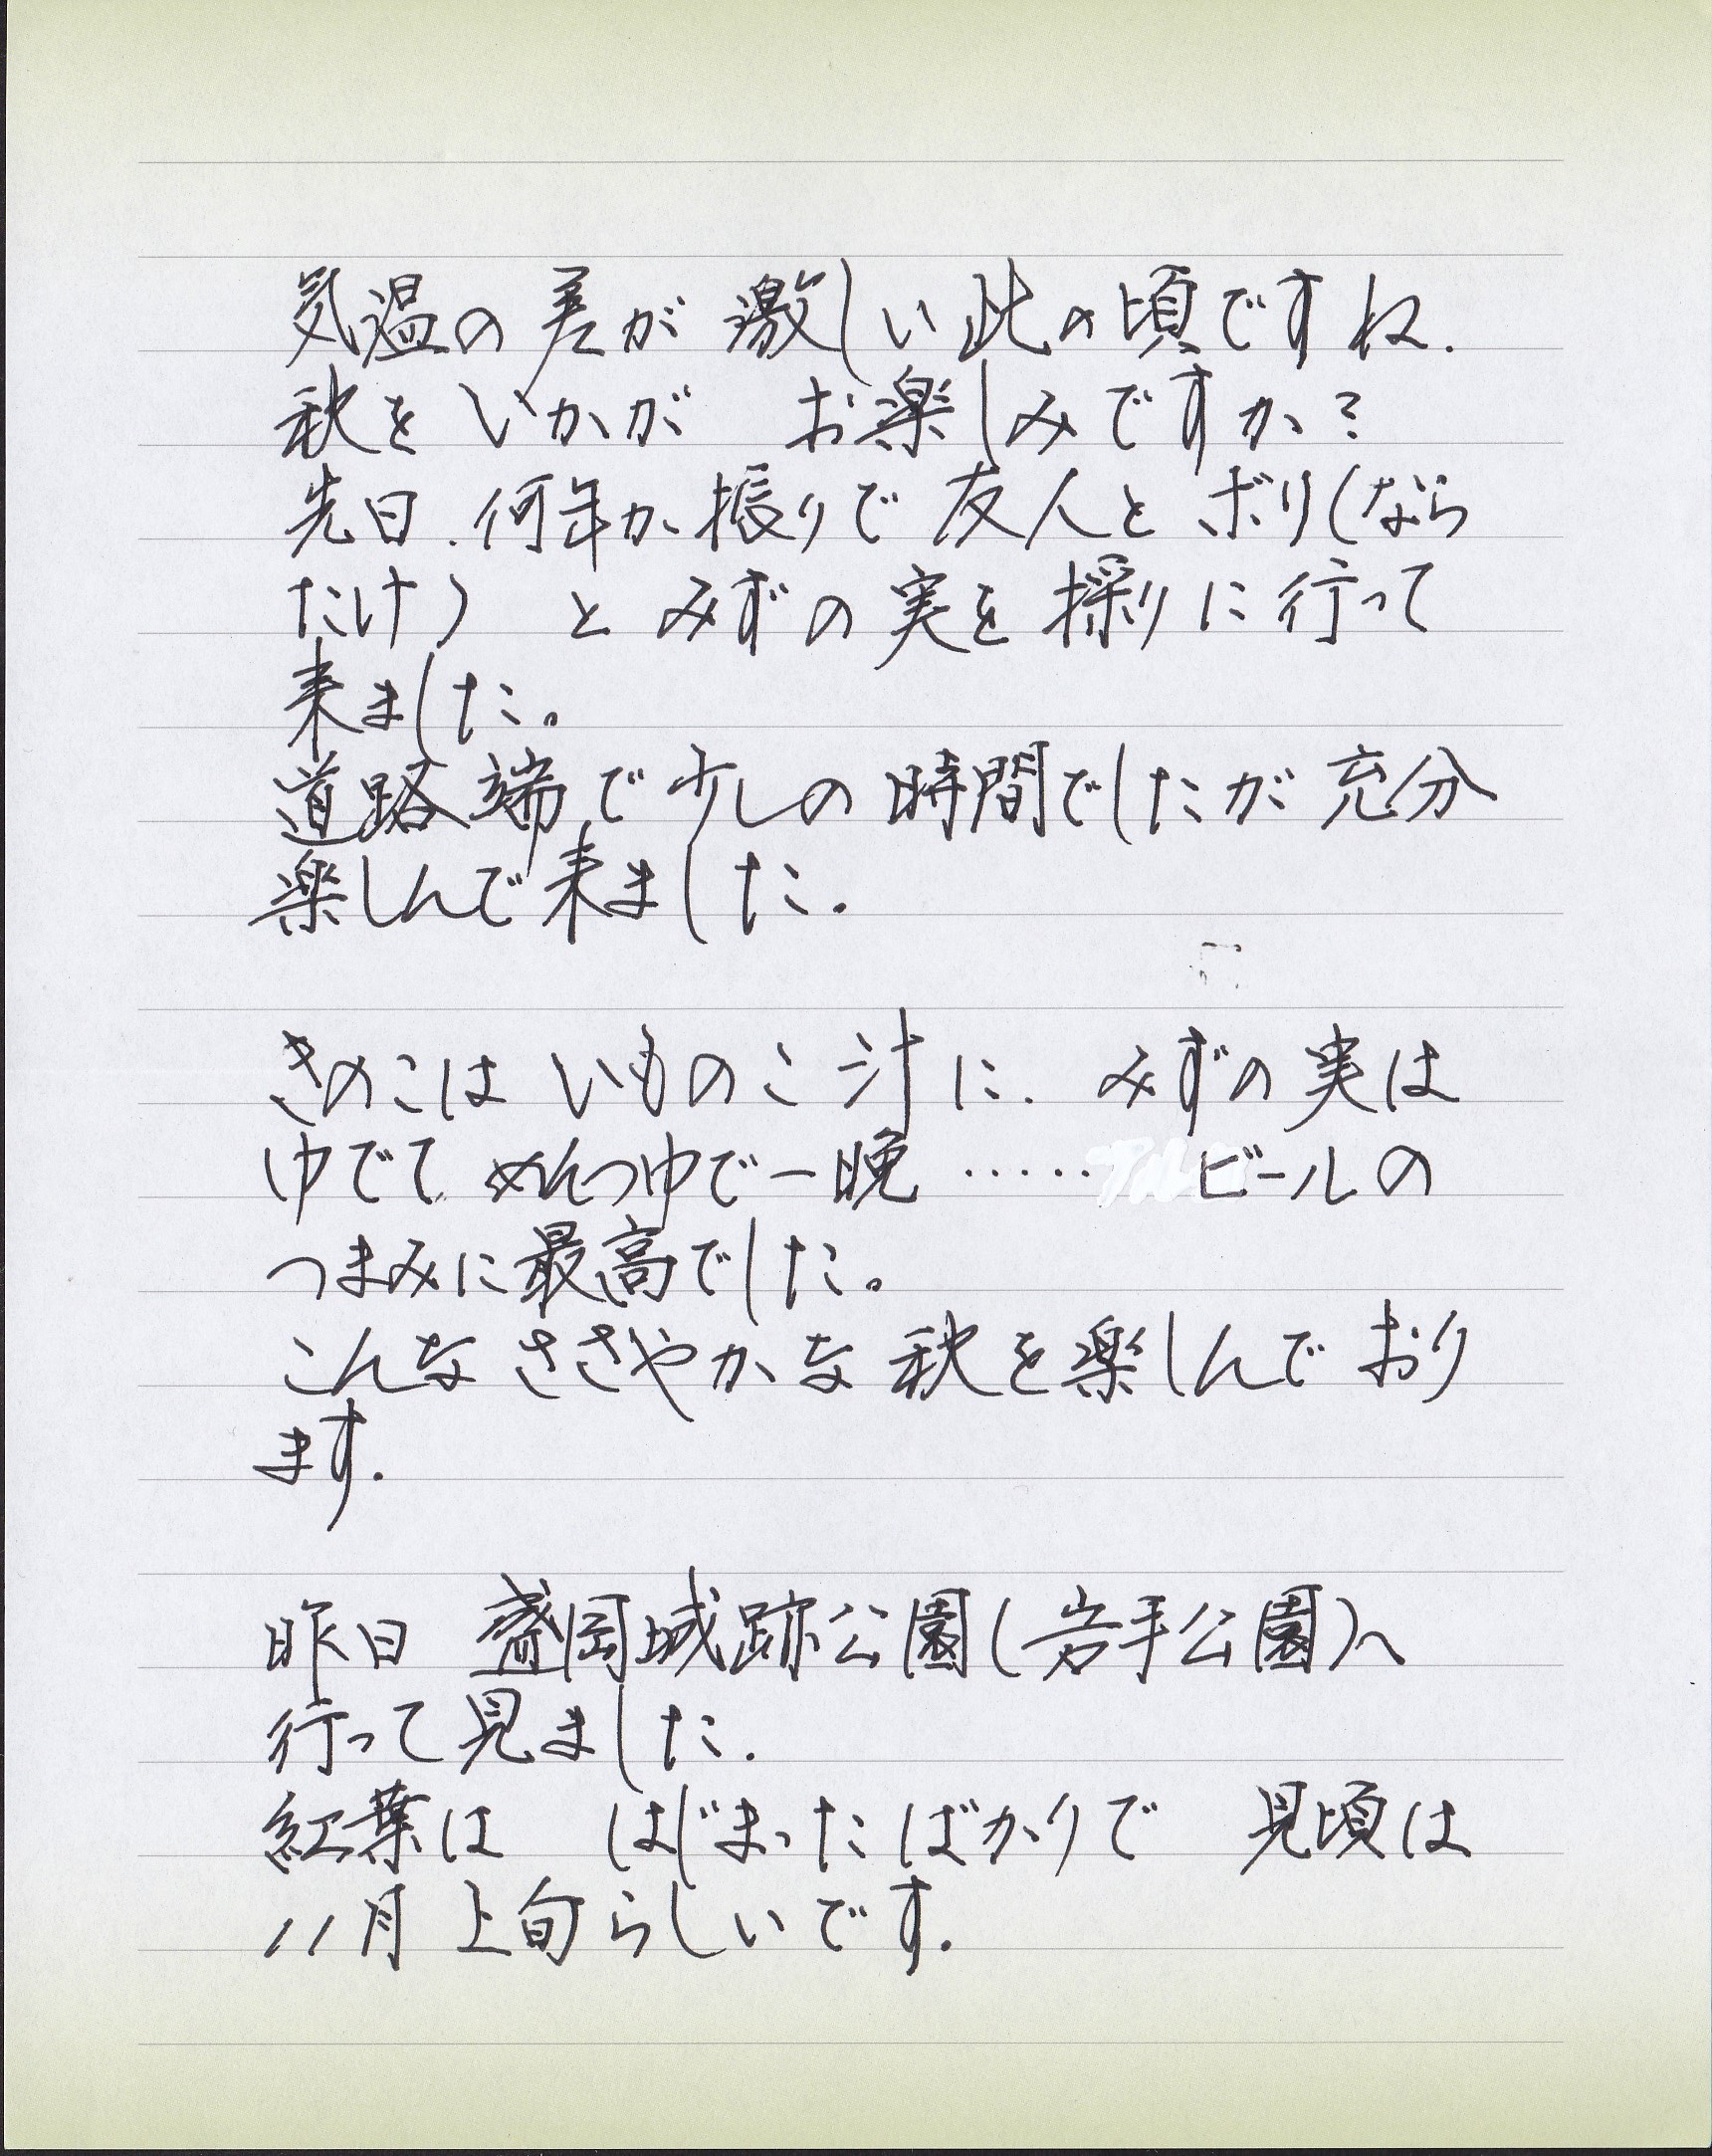 気温の差が激しい此の頃ですね.
秋をいかが お楽しみですか?
先日.何年か振りで友人とボリ(なら
たけ) とみずの実を採りに行って
来ました。
道路端で少しの時間でしたが充分
楽しんで来ました.
きのこはいものこ汁に.みずの実は
ゆでて.めんつゆで一晩 ・・・・・ ビールの
つまみに最高でした。
こんなささやかな秋を楽しんでおり
ます.
昨日 盛岡城跡公園(岩手公園)へ
行って見ました.
紅葉は はじまったばかりで 見頃は
11月上旬らしいです.